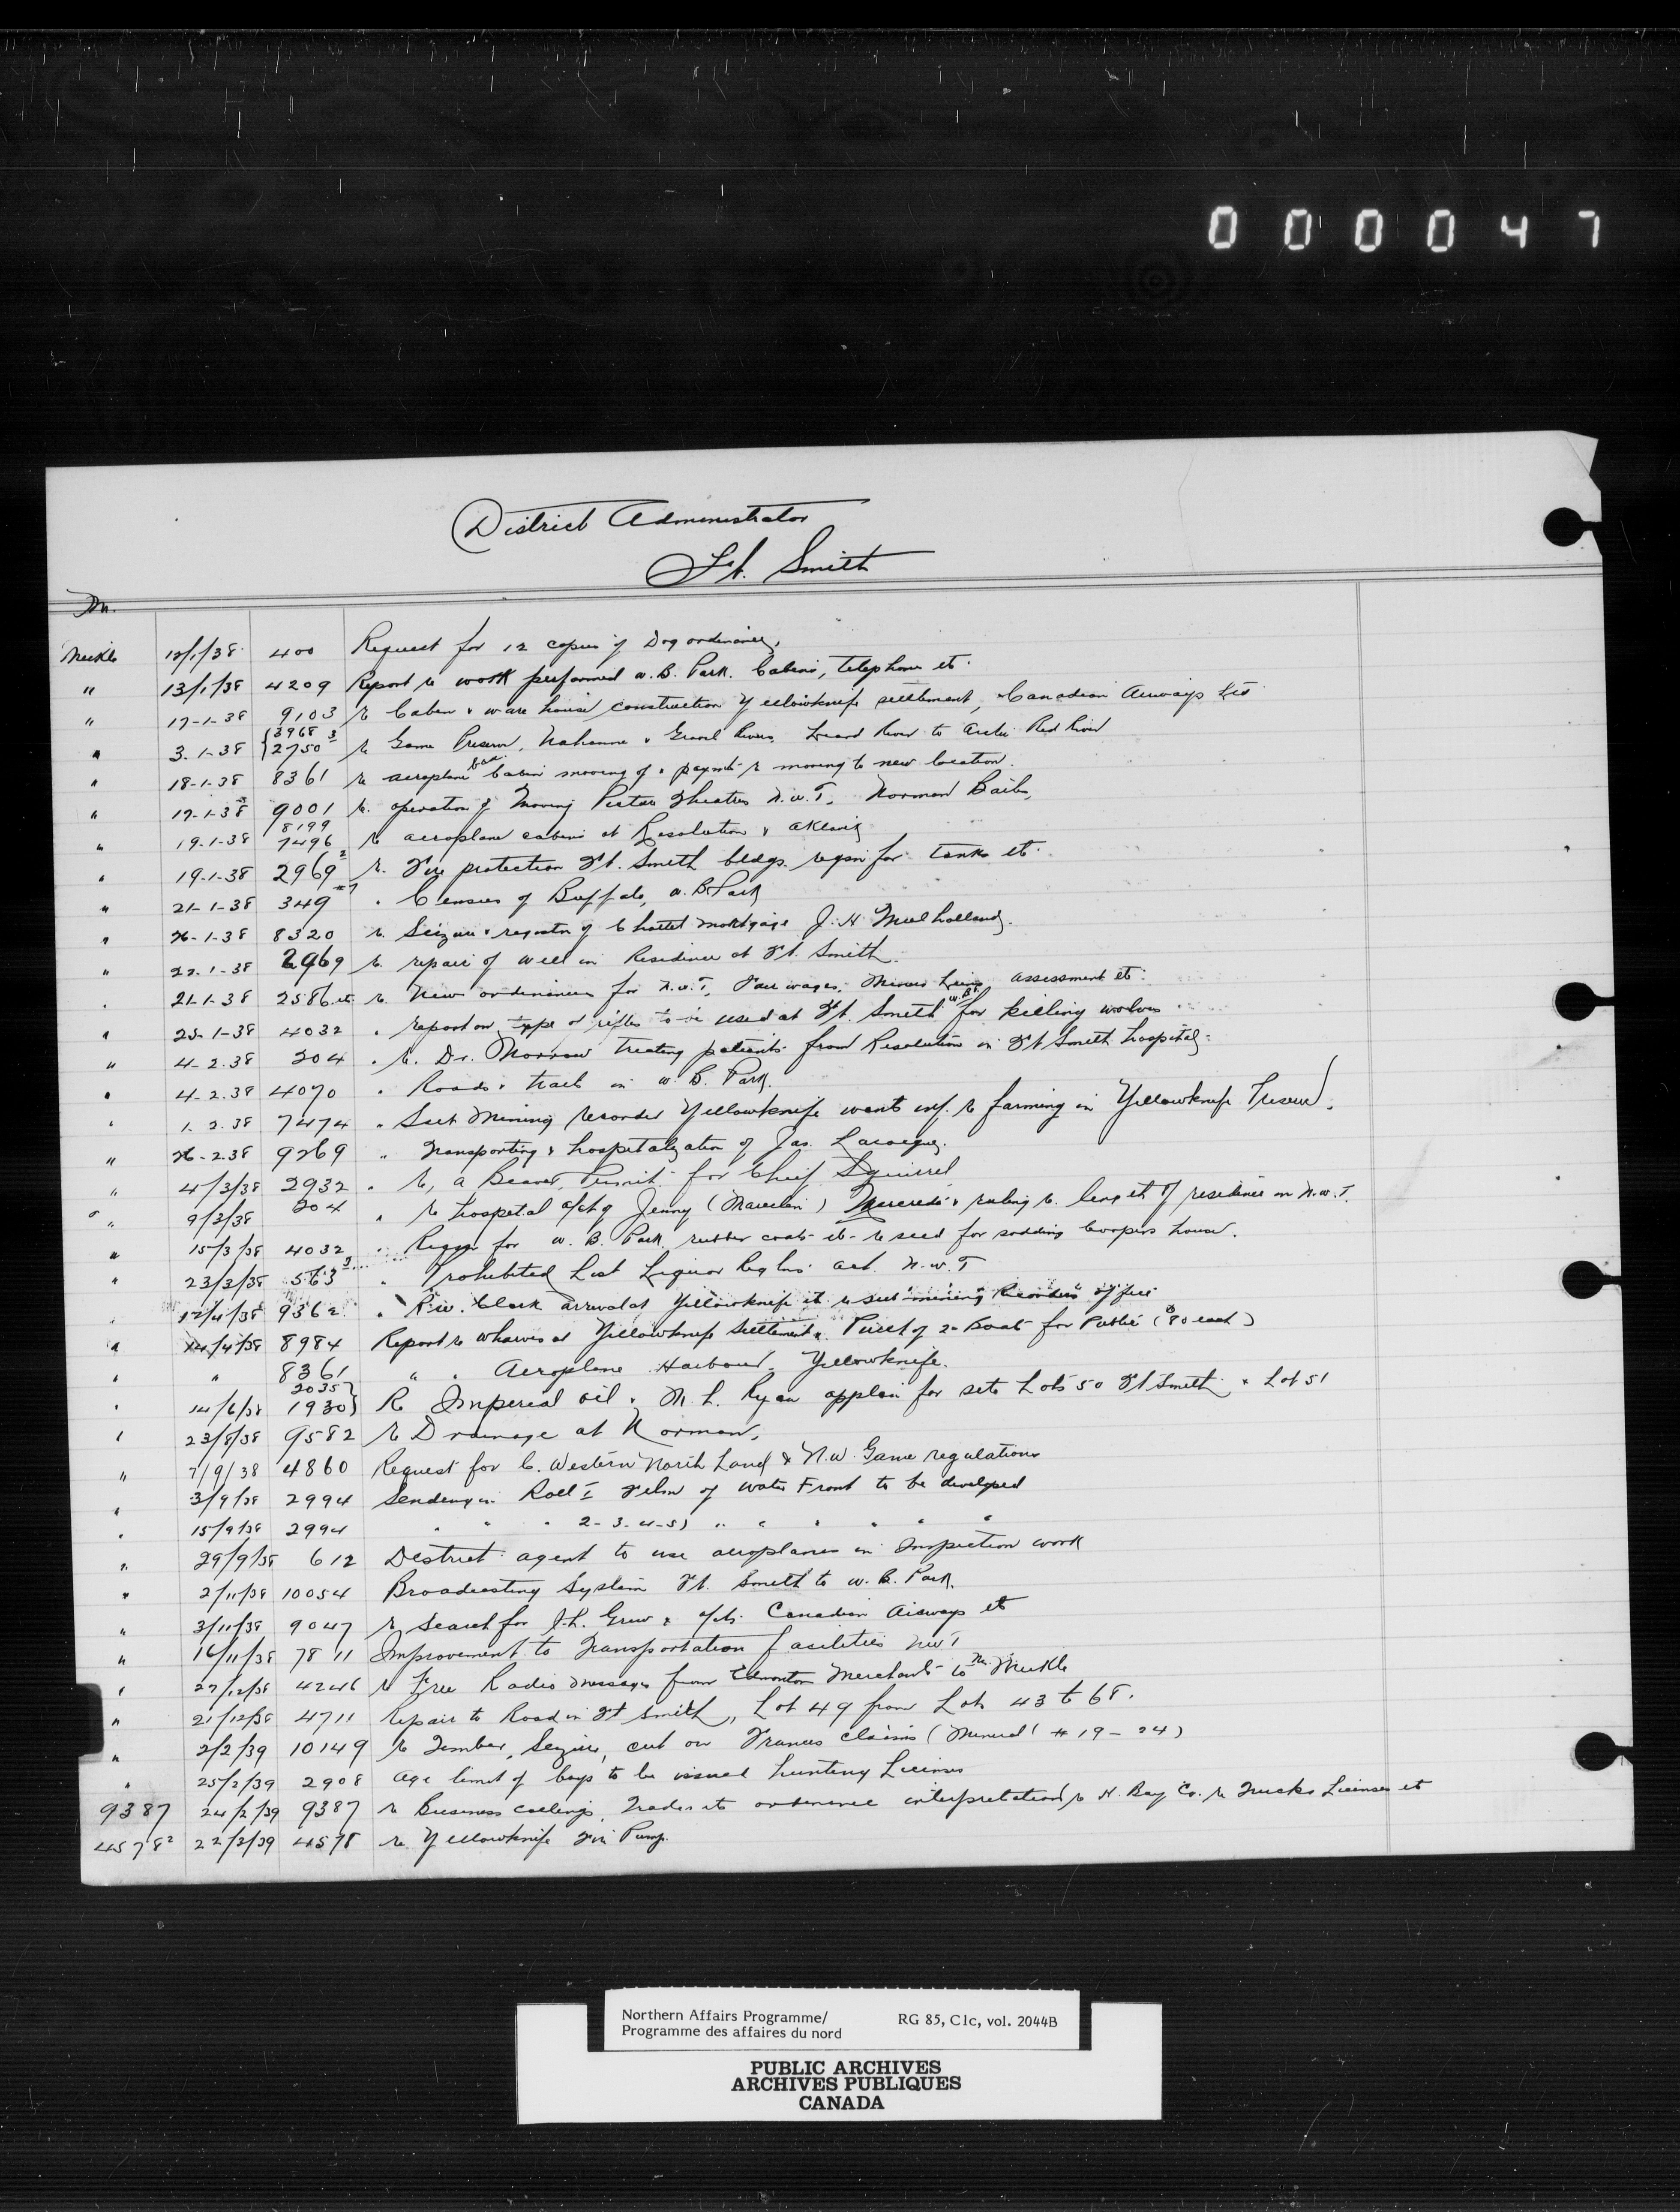 000047
District Administrator
Ft. Smith
Mr.
Meikle 12/1/38 400 Request for 12 copies of Dog ordinance,
" 13/1/38 4209 Report re work performed W.B. Park. Cabins, telephone etc.
" 17-1-38 9103 re Cabin & ware house construction Yellowknife settlement, Canadian Airways Ltd
" 3.1-38 {3968 3 2750 re Game Preserve, Nahanni & Gravel Rivers. Liard River to Arctic Red River
" 18-1-38 8361 re aeroplane base Cabin moving of & paymt re moving to new location.
" 17-1-38 9001 re. operation of Moving Picture Theatres N.W.T. Norman
" 19-1-38 8199 7496 re aeroplane cabins at Resolution & Aklavik
" 19-1-38 2969 2 re. Fire protection Ft. Smith bldgs. reqsn for tanks etc.
" 21-1-38 349 #7 " Census of Buffalo, W.B. Park
" 26-1-38 8320 re. Seizure & regestn of Chattel mortgage J.H Mulholland.
" 22.1-38 2969 re. repair of well in Residence at Ft. Smith.
" 21-1-38 2586 etc re New ordinances for N.W.T. Fair wages, Miners Liens assessment etc.
" 25-1-38 4032 " report on type of rifles to be used at Ft. Smith W.B.P. for killing wolves
" 4-2.38 204 " re. Dr. Morrow treating patients from Resolution in Ft Smith hospital.
" 4-2.38 4070 " Roads & trails in W.B. Park.
" 1.2.38 7474 " Sub Mining recorder Yellowknife wants inf. re farming in Yellowknife Preserve.
" 26-2.38 9269 " Transporting & hospitalization of Jas.
" 4/3/38 2932 " re, a Beaver Permit for Chief Squirrel
" 9/3/38 204 " re hospital a/c of Jenny () Mercredi & ruling re. length of residence in N.W.T.
" 15/3/38 4032 " Reqsn for W.B. Park rubber coats etc re seed for sodding Coopers house.
" 23/3/38 563 3 " Prohibited List Liquor Reglns act. N.W.T
" 12/4/38 9362 " Riv. Clark arrival at Yellowknife etc re sub "mining Recorders" office
" 14/4/38 8984 Report re wharves at Yellowknife Settlement & Purch of 2 Boats for Public (80 each)
" " 8361 " " Aeroplane Harbour. Yellowknife.
" 14/6/38 2035} 1930} Re Imperial oil & M.L. Ryan appln for sets Lots 50 Ft Smith & Lot 51
" 23/8/38 9582 re Drainage at Norman,
" 7/9/38 4860 Request for C. Western North Land & N.W. Game regulations
" 3/9/38 2994 Sending in Roll I Film of water Front to be developed
" 15/9/38 2994 " " " 2-3-4-5) " " " " " "
" 29/9/38 612 District agent to use aeroplanes in Inspection work
" 2/11/38 10054 Broadcasting System Ft. Smith to W.B. Park.
" 3/11/38 9047 re Search for J.L. Grew & a/cts. Canadian Airways etc
" 16/11/38 7811 Improvement to Transportation facilities NWT
" 27/12/38 4246 re Free Radio messages from Edmonton Merchants to Mr. Meikle
" 21/12/38 4711 Repair to Road in Ft Smith, Lot 49 from Lots 43 to 68.
" 2/2/39 10149 re Timber, Seizure, cut on Frances claims (Mineral #19-24)
" 25/2/39 2908 Age limit of boys to be issued hunting Licenses
9387 24/2/39 9387 re Business callings, Trades etc ordinance interpretation re H. Bay Co. re Trucks Licenses etc
4578 2 22/2/39 4578 re Yellowknife Fire Pump.
Northern Affairs Programme/ RG 85, C1c, vol. 2044B
Programme des affaires du nord
PUBLIC ARCHIVES
ARCHIVES PUBLIQUES
CANADA